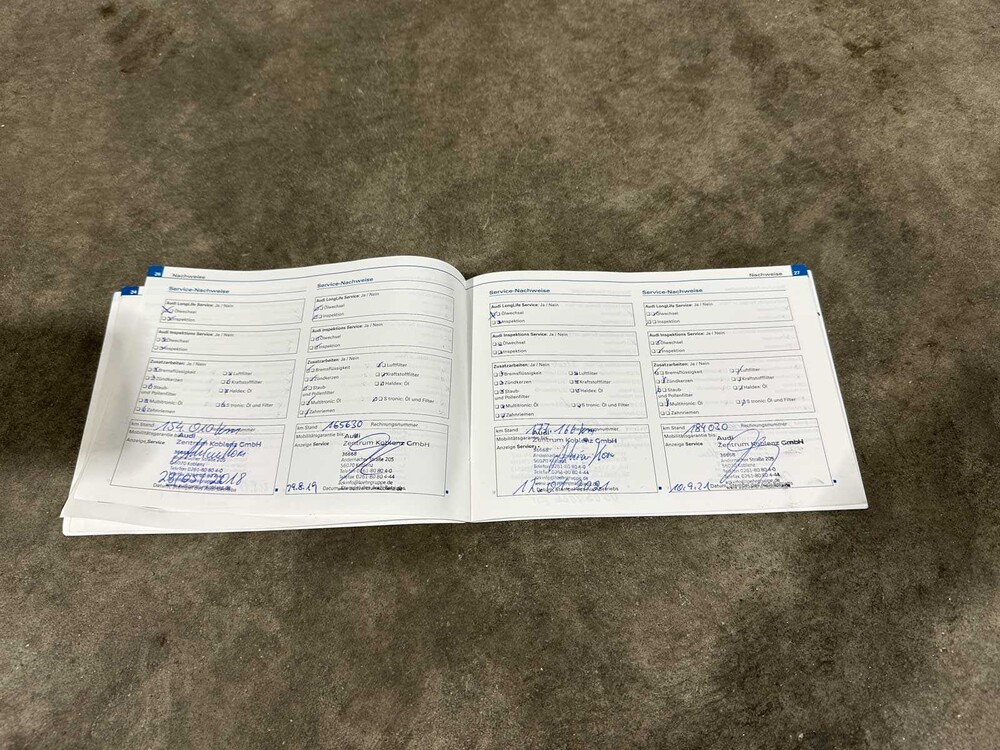 26 Nachweise
24
Service-Nachweise
Audi LongLife Service: Ja / Nein
Ölwechsel
Inspektion
Audi Inspektions Service: Ja / Nein
Ölwechsel
Inspektion
Zusatzarbeiten: Ja / Nein
Bremsflüssigkeit
Luftfilter
Zündkerzen
Kraftstofffilter
Staub- und Pollenfilter
Haldex: Öl
Multitronic: Öl
S tronic: Öl und Filter
Zahnriemen
km Stand 154 010 km
Mobilitätsgarantie bis
Audi
Anzeige Service
Zentrum Koblenz GmbH
Service-Nachweise
Audi LongLife Service: Ja / Nein
Ölwechsel
Inspektion
Audi Inspektions Service: Ja / Nein
Ölwechsel
Inspektion
Zusatzarbeiten: Ja / Nein
Bremsflüssigkeit
Luftfilter
Zündkerzen
Kraftstofffilter
Staub- und Pollenfilter
Haldex: Öl
Multitronic: Öl
S tronic: Öl und Filter
Zahnriemen
km Stand 165630 Rechnungsnummer
Mobilitätsgarantie bis
Audi
Anzeige Service
Zentrum Koblenz GmbH
36668
Andernacher Straße 205
56070 Koblenz
29.8.19
Nachweise 27
Service-Nachweise
Audi LongLife Service: Ja / Nein
Ölwechsel
Inspektion
Audi Inspektions Service: Ja / Nein
Ölwechsel
Inspektion
Zusatzarbeiten: Ja / Nein
Bremsflüssigkeit
Luftfilter
Zündkerzen
Kraftstofffilter
Staub- und Pollenfilter
Haldex: Öl
Multitronic: Öl
S tronic: Öl und Filter
Zahnriemen
km Stand
Mobilitätsgarantie bis
Audi
Anzeige Service
Zentrum Koblenz GmbH
Service-Nachweise
Audi LongLife Service: Ja / Nein
Ölwechsel
Inspektion
Audi Inspektions Service: Ja / Nein
Ölwechsel
Inspektion
Zusatzarbeiten: Ja / Nein
Bremsflüssigkeit
Luftfilter
Zündkerzen
Kraftstofffilter
Staub- und Pollenfilter
Haldex: Öl
Multitronic: Öl
S tronic: Öl und Filter
Zahnriemen
km Stand 184030 Rechnungsnummer
Mobilitätsgarantie bis
Audi
Anzeige Service
Zentrum Koblenz GmbH
36668
Andernacher Straße 205
56070 Koblenz
10.9.21